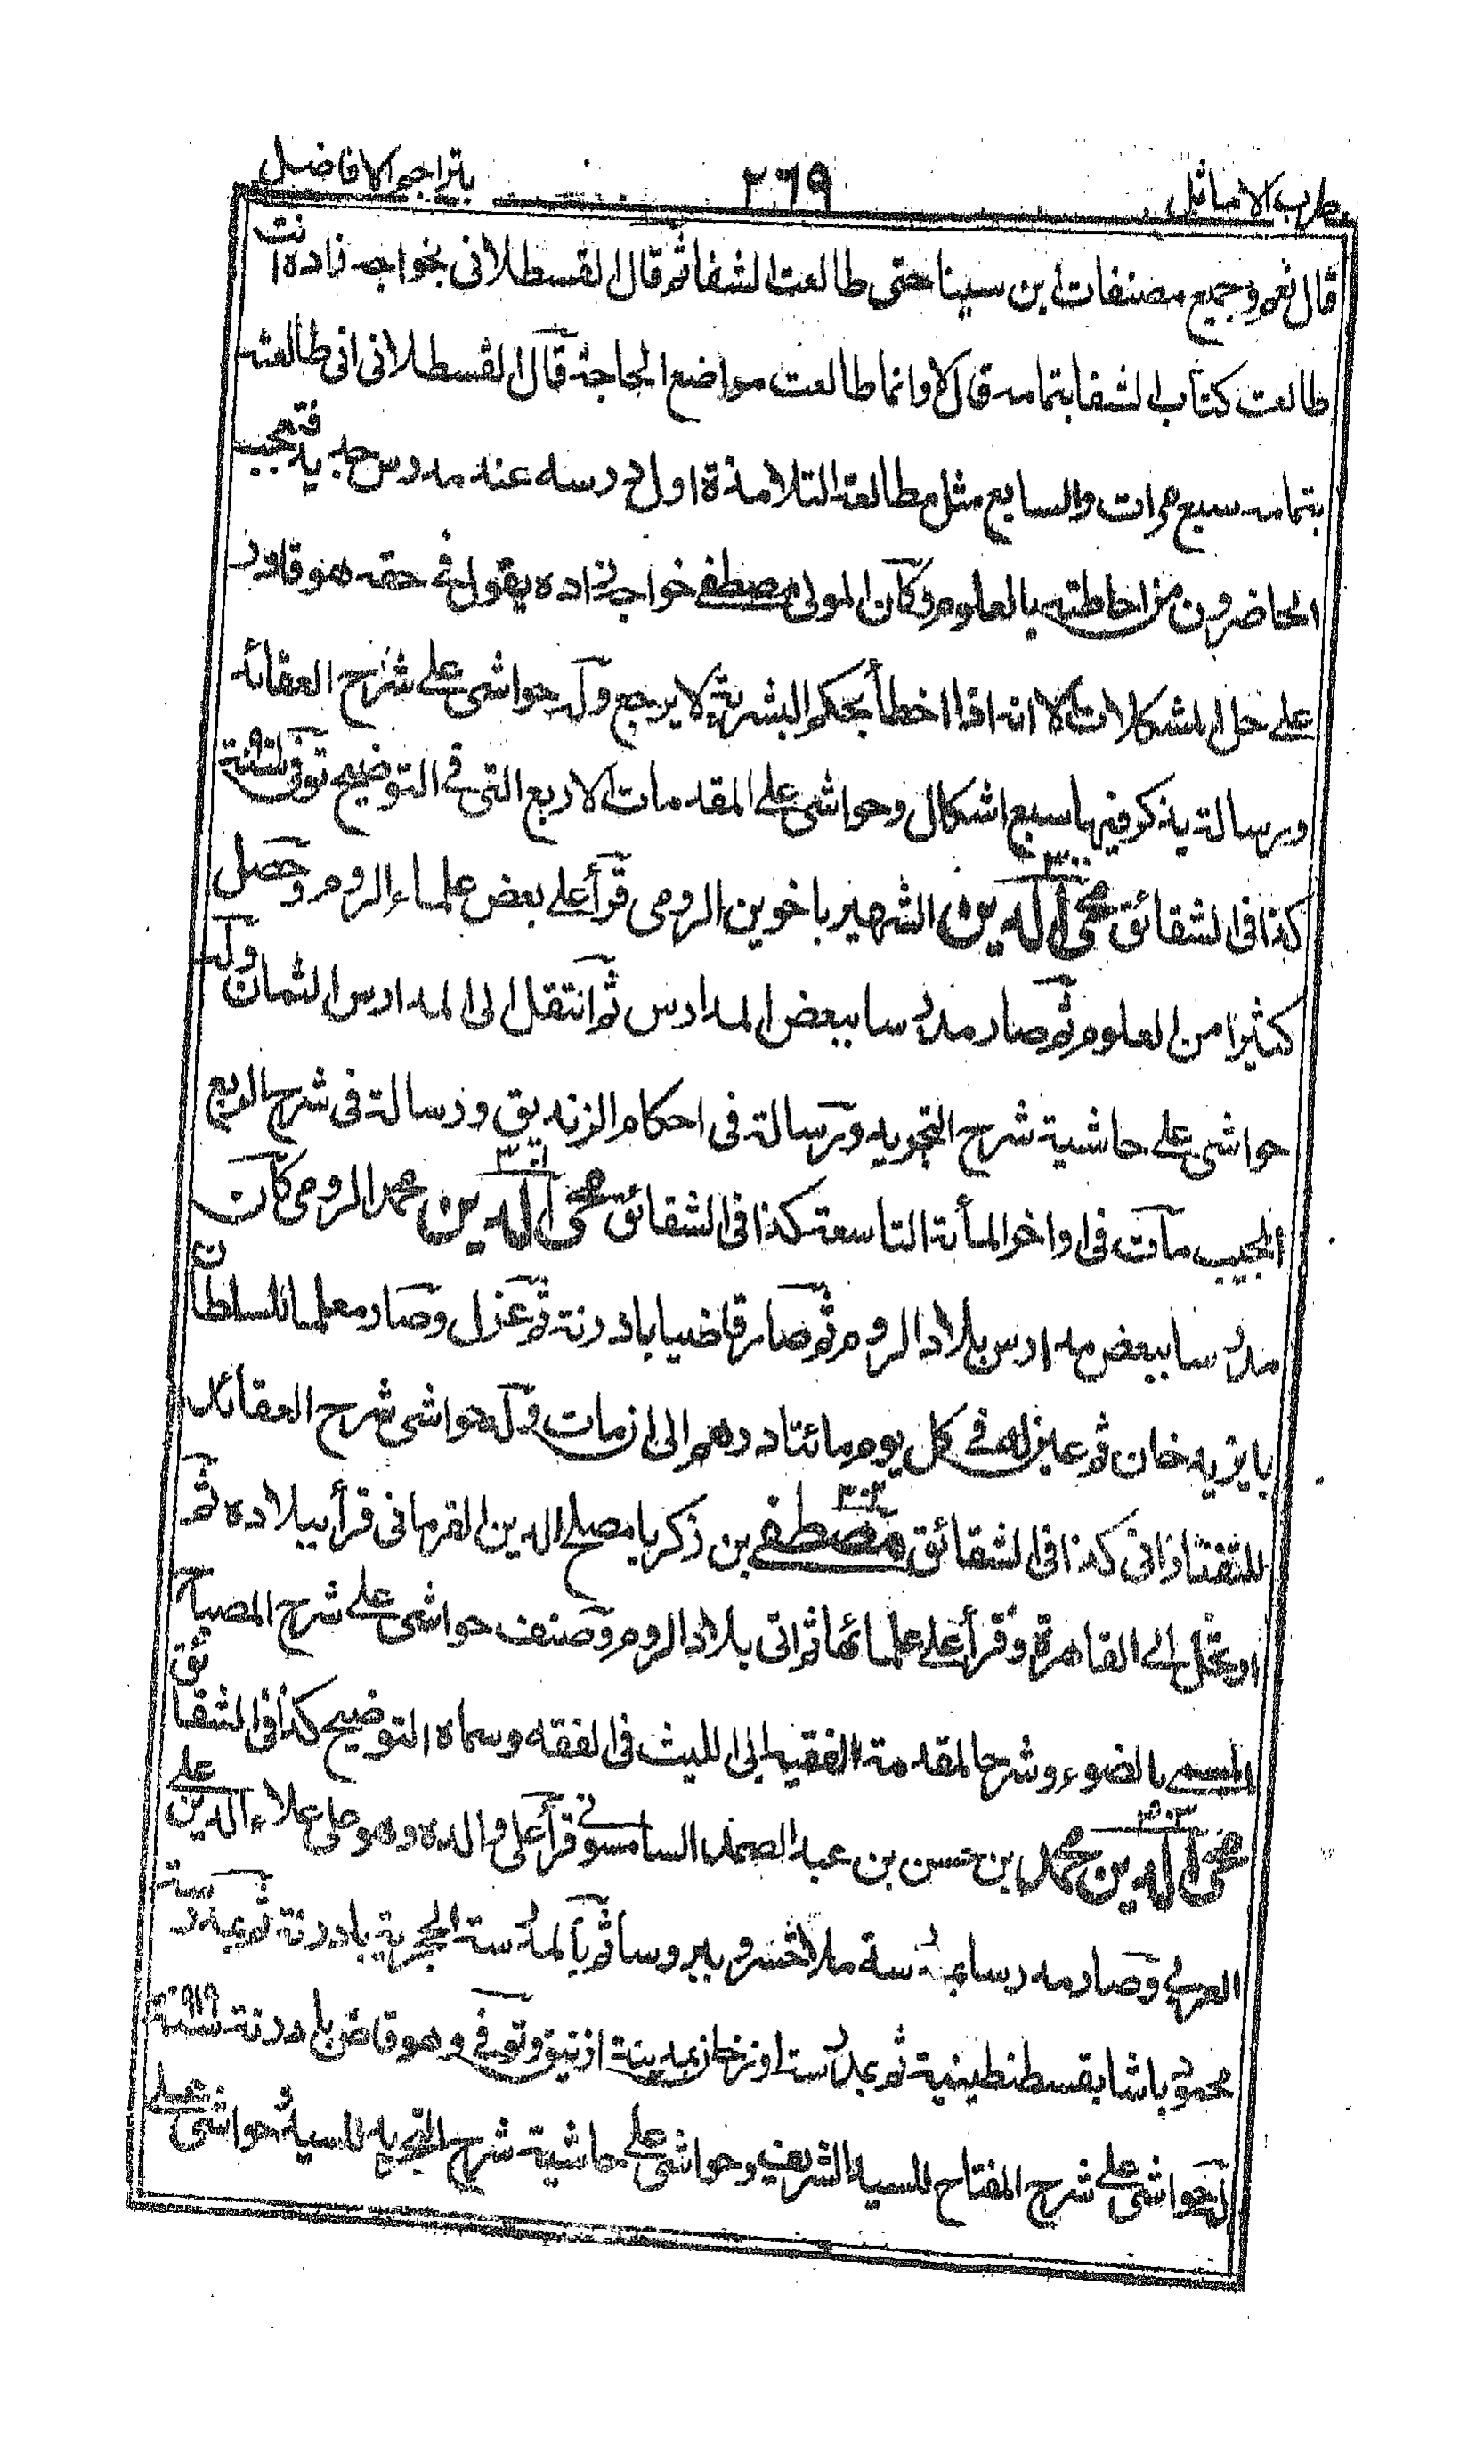 طرب الاماثل ٢٦٩ بتراجم الافاضل
قال نعم وجميع مصنفات ابن سينا حتى طالعت الشفا ثم قال القسطلانى بخواجه زاده انت
طالعت كتاب الشفا بتمامه قال لا وانما طالعت مواضع الحاجة قال القسطلانى انى طالعته
بتمامه سبع مرات والسابع مثل مطالعة التلامذة اول درسه عند مدرس جديد فتعجب
الحاضرون من احاطته بالعلوم وكان المولى مصطفى خواجه زاده يقول فى حقه هو قادر
على حل المشكلات الا انه اذا اخطأ بحكم البشرية لا يرجع وله حواشى على شرح العقائد
ورسالة يذكر فيها سبع اشكال وحواشى على المقدمات الاربع التى فى التوضيح توفى سنة ٩٠١
كذا فى الشقائق محى الدين الشهير باخوين الرومى قرأ على بعض علماء الروم وحصل
كثيرا من العلوم ثم صار مدرسا ببعض المدارس ثم انتقل الى المدارس الثمان وله
حواشى على حاشية شرح التجريد ورسالة فى احكام الزنديق ورسالة فى شرح الربع
المجيب مات فى اواخر المأئة التاسعة كذا فى الشقائق محى الدين محمد الرومى كان
مدرسا ببعض مدارس بلاد الروم ثم صار قاضيا بادرنة ثم عزل وصار معلما للسلطان
بايزيد خان ثم عين له فى كل يوم مائتا درهم الى ان مات وله حواشى شرح العقائد
للتفتازانى كذا فى الشقائق مصطفى بن زكريا مصلح الدين القرمانى قرأ ببلاده ثم
ارتحل الى القاهرة وقرأ على علمائها ثم اتى بلاد الروم وصنف حواشى على شرح المصباح
المسمى بالضوء وشرحا لمقدمة الفقيه ابى الليث فى الفقه وسماه التوضيح كذا فى الشقائق
محى الدين محمد بن حسن بن عبد الصمد السامسونى قرأ على والده وهو على علاء الدين على
العربى وصار مدرسا بمدرسة ملا خسرو ببروسا ثم بالمدرسة الحجرية بادرنة ثم بمدرسة
محمود باشا بقسطنطينية ثم بمدرسة اورخان بمدينة ازنيق وتوفى وهو قاض بادرنة سنة ٩١٩
له حواشى على شرح المفتاح للسيد الشريف وحواشى على حاشية شرح التجريد للسيد وحواشى على